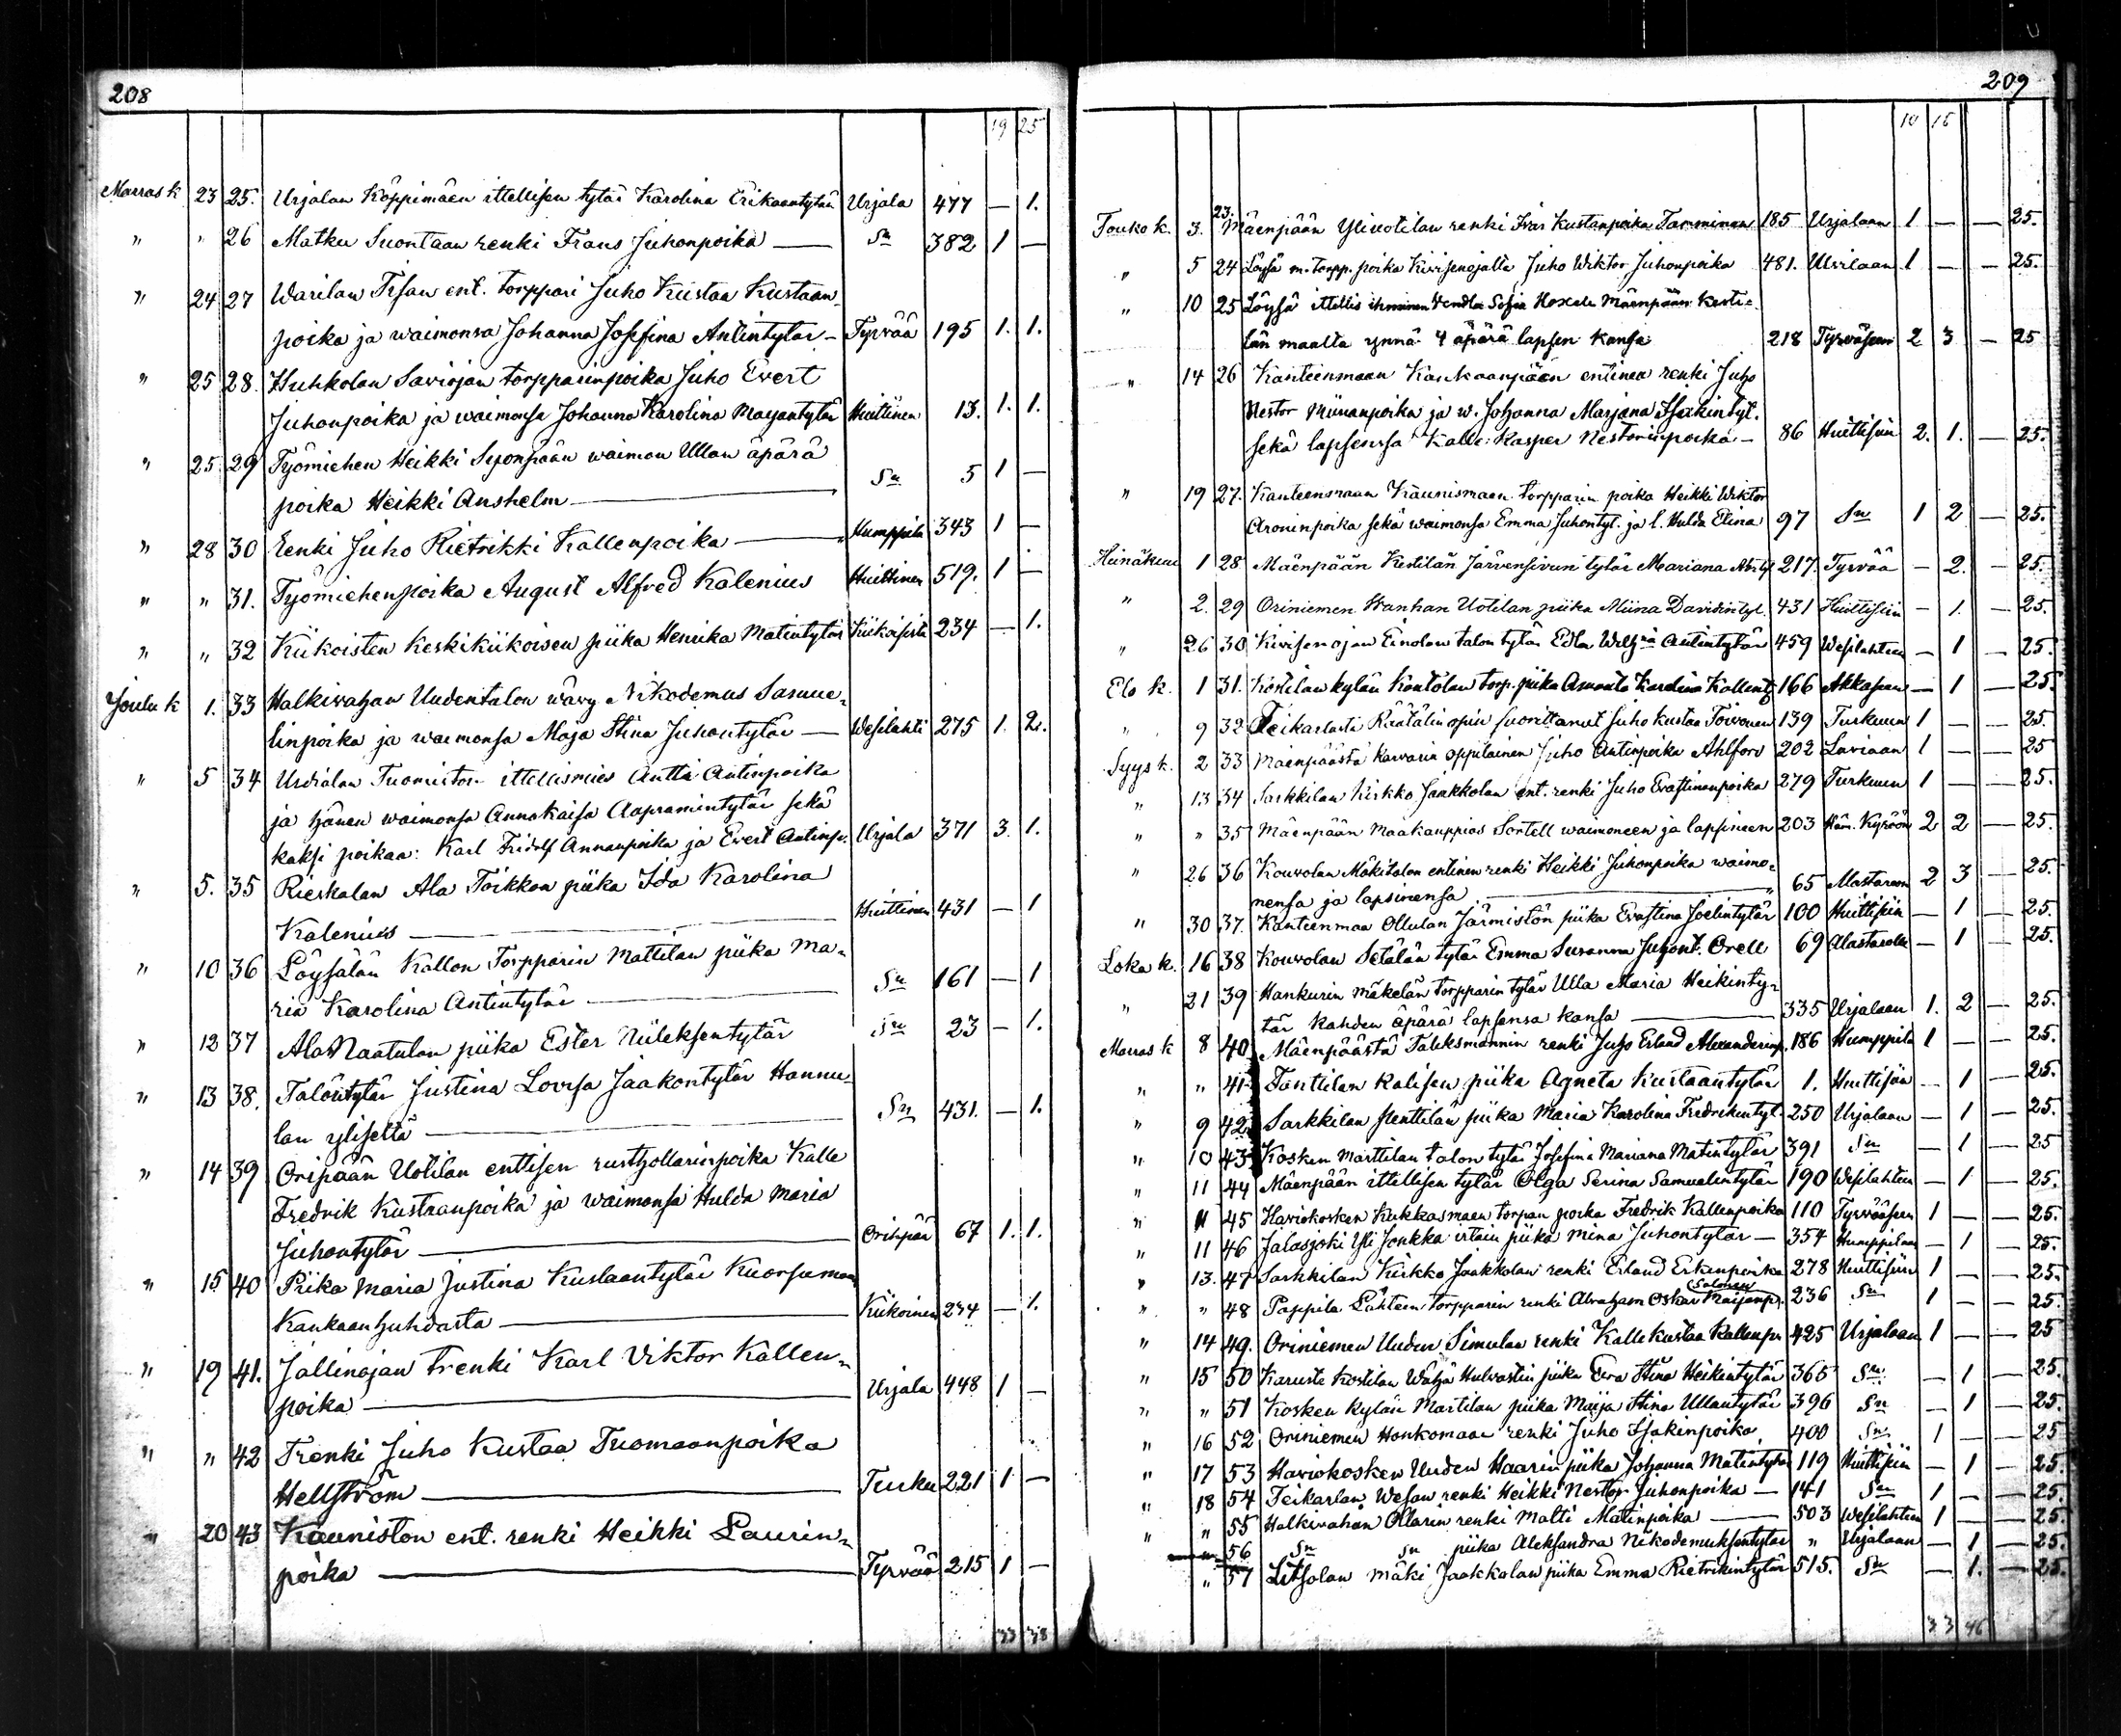 208
19 25
Marras k 23 25. Urjalan Käppimäen ittellisen tytär Karolina Erikaantytär Urjala 477 — 1.
" " 26 Matku Suontaan renki Frans Juhonpoika — Sn 382 1 —
" 24 27 Warilan Frsan ent. torppari Juho Kustaa Kustaan-
poika ja waimonsa Johanna Josefina Antintytär — Tyrvää 195 1. 1.
" 25 28. Huhkolan Saviojan torpparinpoika Juho Evert
Juhonpoika ja waimonsa Johanna Karolina Mayantytär Huittinen 13. 1. 1.
" 25 29 Työmiehen Heikki Seponpään waimon Ullan äpärä
poika Heikki Anshelm — Sn 5 1 —
" 28 30 Renki Juho Rietrikki Kallenpoika — Humppila 343 1 —
" " 31. Työmiehenpoika August Alfred Kalenius Huittinen 519. 1 —
" " 32 Kiikoisten Keskikiikoisen piika Henrika Matintytär Kiikoisista 234 — 1.
Joulu k 1. 33 Halkivahan Uudentalon wävy Nikodemus Samue-
linpoika ja waimonsa Maja Stina Juhontytär — Wesilahti 275 1. 2.
" 5 34 Urdialan Tuomiston ittellismies Antti Antinpoika
ja hänen waimonsa Annakaisa Aapramintytär sekä
kaksi poikaa: Karl Fridolf Annanpoika ja Evert Antinp. Urjala 371 3. 1.
" 5. 35 Rieskalan Ala Toikkon piika Ida Karolina
Kalenius — Huittinen 431 — 1
" 10 36 Löysälän Kallon Torpparin Mattilan piika Ma-
ria Karolina Antintytär — Sn 161 — 1
" 12 37 Ala Naatulan piika Ester Niileksentytär Sn 23 — 1.
" 13 38. Talontytär Justina Lovisa Jaakontytär Hannu-
lan yliseltä — Sn 431. — 1.
" 14 39 Oripään Uotilan entisen rusthollarinpoika Kalle
Fredrik Kustaanpoika ja waimonsa Hulda Maria
Juhontytär — Oripää 67 1. 1.
" 15 40 Piika Maria Justina Kustaantytär Kuorsumaan
Kankaanhuhdasta — Kiikoinen 234 — 1.
" 19 41. Jallinojan trenki Karl Viktor Kallen-
poika — Urjala 448 1 —
" " 42 Trenki Juho Kustaa Tuomaanpoika
Hellström — Turku 221 1 —
" 20 43 Kauniston ent. renki Heikki Laurin-
poika — Tyrvää 215 1 —
33 38
209
10 15
Touko k. 3. 23. Mäenpään Yliuotilan renki Ivar Kustanpoika Tamminen 185 Urjalaan 1 — — 25.
" 5 24 Löysä m. torpp. poika Kivisenojalta Juho Wiktor Juhonpoika 481. Ulvilaan 1 — — 25.
" 10 25 Löysä ittellis ihminen Wendla Sofia Hoxell Mäenpään Kesti-
län maalta ynnä 4 äpärä lapsen kansa 218 Tyrvääseen 2 3 — 25
" 14 26 Kanteenmaan Kankaanpään entinen renki Juho
Nestor Miinanpoika ja w. Johanna Marjana Isakintyt.
sekä lapsensa Kalle Kasper Nestorinpoika — 86 Huittisiin 2. 1. — 25.
" 19 27. Kanteenmaan Kaunismaan torpparin poika Heikki Wiktor
Aroninpoika sekä waimonsa Emma Juhontyt. ja l. Hulda Elina 97 Sn 1 2 — 25.
Heinäkuu 1 28 Mäenpään Kestilän Järvensivun tytär Mariana 217. Tyrvää — 2. — 25.
" 2. 29 Oriniemen Wanhan Uotilan piika Miina Davidintyt. 431 Huittisiin — 1. — 25.
" 26 30 Kivisenojan Einolan talon tytär Edla Antintytär 459 Wesilahteen — 1 — 25.
Elo k. 1 31. Kostilan kylän Kontolan torp. piika Amanda Karolina Kallent. 166 Akkaseen — 1 — 25
" 9 32 Teikarlasta Räätälin opin suorittanut Juho Kustaa Toivonen 139 Turkuun 1 — — 25.
Syys k. 2 33 Mäenpäästä karvarin oppilainen Juho Antinpoika Ahlfors 202 Laviaan 1 — — 25
" 13 34 Sarkkilan Kirkko Jaakkolan ent. renki Juho Evastinanpoika 279 Turkuun 1 — — 25.
" " 35 Mäenpään Maakauppias Sortell waimoneen ja lapsineen 203 Häm. Kyröön 2 2 — 25.
" 26 36 Kouvolan Mäkitalon entinen renki Heikki Juhonpoika waimo-
nensa ja lapsinensa — 65 Alastaroon 2 3 — 25.
" 30 37. Kanteenmaa Ollulan Järmistön piika Evastina Joelintytär 100 Huittisiin — 1 — 25.
Loka k. 16 38 Kouvolan Setälän tytär Emma Susanna Juhont. Orell 69 Alastarolle — 1 — 25.
" 21 39 Hankurin Mäkelän torpparin tytär Ulla Maria Heikinty-
tär kahden äpärä lapsensa kansa — 335 Urjalaan 1. 2 — 25.
Marras k 8 40 Mäenpäästä Taleksmannin renki Juho Erland Alexanderinp. 186 Humppila 1 — — 25.
" " 41 Tanttilan Kalisen piika Agneta Kustaantytär 1. Huittisiin — 1 — 25.
" 9 42 Sarkkilan Penttilän piika Maria Karolina Fredrikintyt. 250 Urjalaan — 1 — 25.
" 10 43 Kosken Marttilan talon tytär Josefina Mariana Matintytär 391 Sn — 1 — 25
" 11 44 Mäenpään ittellisen tytär Olga Serina Samuelintytär 190 Wesilahteen — 1 — 25.
" 11 45 Haviokosken Kukkasmaen torpan poika Fredrik Kallenpoika 110 Tyrvääseen 1 — — 25.
" 11 46 Jalasjoki Yli Jonkka irtain piika Mina Juhontytär — 354 Humppilaan — 1 — 25.
" 13. 47 Sarkkilan Kirkko Jaakkolan renki Erland Erkinpoika 278 Huittisiin 1 — — 25.
Salonen
" " 48 Pappila Lähteen torpparin renki Abraham Oskar Maijanp. 236 Sn 1 — — 25.
" 14 49. Oriniemen Uuden Simulan renki Kalle Kustaa Kallenp. 425 Urjalaan 1 — — 25
" 15 50 Karuste Kostilan Wähä Hulvastin piika Eva Stina Heikintytär 365 Sn — 1 — 25.
" " 51 Kosken kylän Martilan piika Maija Stina Ullantytär 396 Sn — 1 — 25.
" 16 52 Oriniemen Honkomaan renki Juho Isakinpoika 400 Sn 1 — — 25
" 17 53 Haviokosken Uuden Haarin piika Johanna Matintytär 119 Huittisiin — 1 — 25.
" 18 54 Teikarlan Wesan renki Heikki Nestor Juhonpoika — 141 Sn 1 — — 25.
" " 55 Halkivahan Ollarin renki Matti Matinpoika — 503 Wesilahteen 1 — — 25.
" 56 Sn Sn piika Aleksandra Nikodemuksentytär " Urjalaan — 1 — 25.
" 57 Litsolan Mäki Jaakkolan piika Emma Rietrikintytär 515. Sn — 1. — 25.
33 46